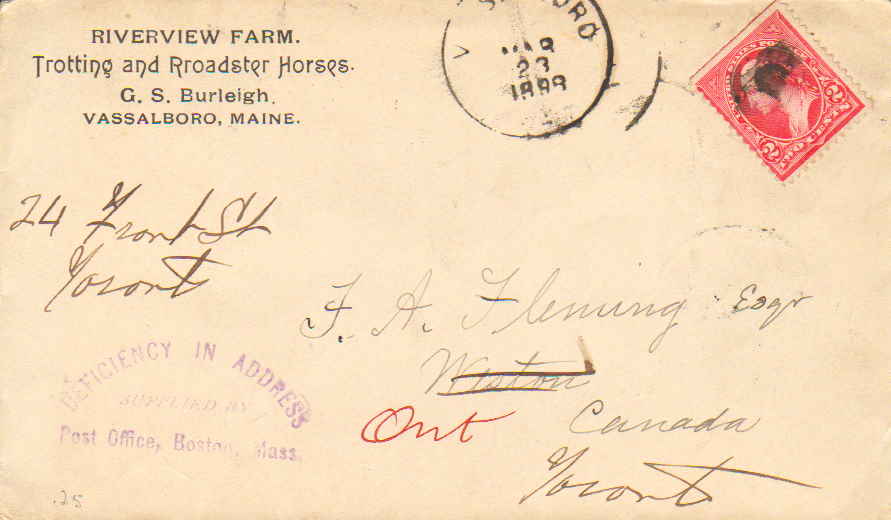 RIVERVIEW FARM.
Trotting and Rroadster Horses.
G. S. Burleigh.
VASSALBORO, MAINE.
MAR
23
1898
UNITED STATES POSTAGE
2 2
TWO CENTS
24 Front St
Toronto
F. A. Fleming Esqr
Weston
Ont Canada
Toronto
DEFICIENCY IN ADDRESS
SUPPLIED BY
Post Office, Boston, Mass.
.25